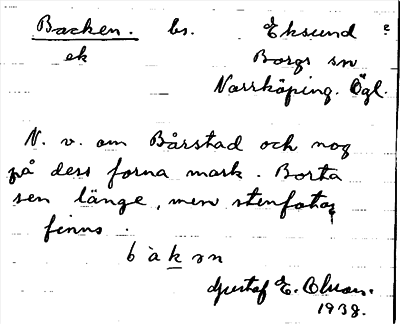 Backen. bs. Eksund
ek Borgs sn
Norrköping. Ögl.
N. v. om Bårstad och nog
på dess forna mark. Borta
sen länge, men stenfoten
finns.
b à k ən
Gustaf E. Olson.
1938.